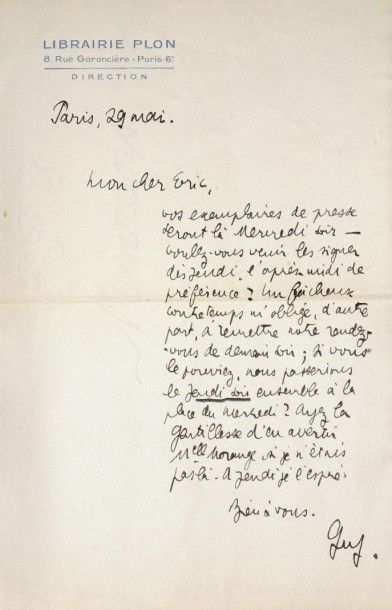 LIBRAIRIE PLON
8, Rue Garancière - Paris-6e
DIRECTION
Paris, 29 mai.
Mon cher Eric,
vos exemplaires de presse
seront là Mercredi soir —
voulez-vous venir les signer
dès Jeudi, l'après-midi de
préférence ? Un fâcheux
contretemps m'oblige, d'autre
part, à remettre notre rendez-
-vous de demain soir ; si vous
le pouviez, nous passerions
le Jeudi soir ensemble à la
place du mercredi ? Ayez la
gentillesse d'en avertir
Mlle Morange si je n'étais
pas là. A Jeudi je l'espère.
Bien à vous.
Guy.